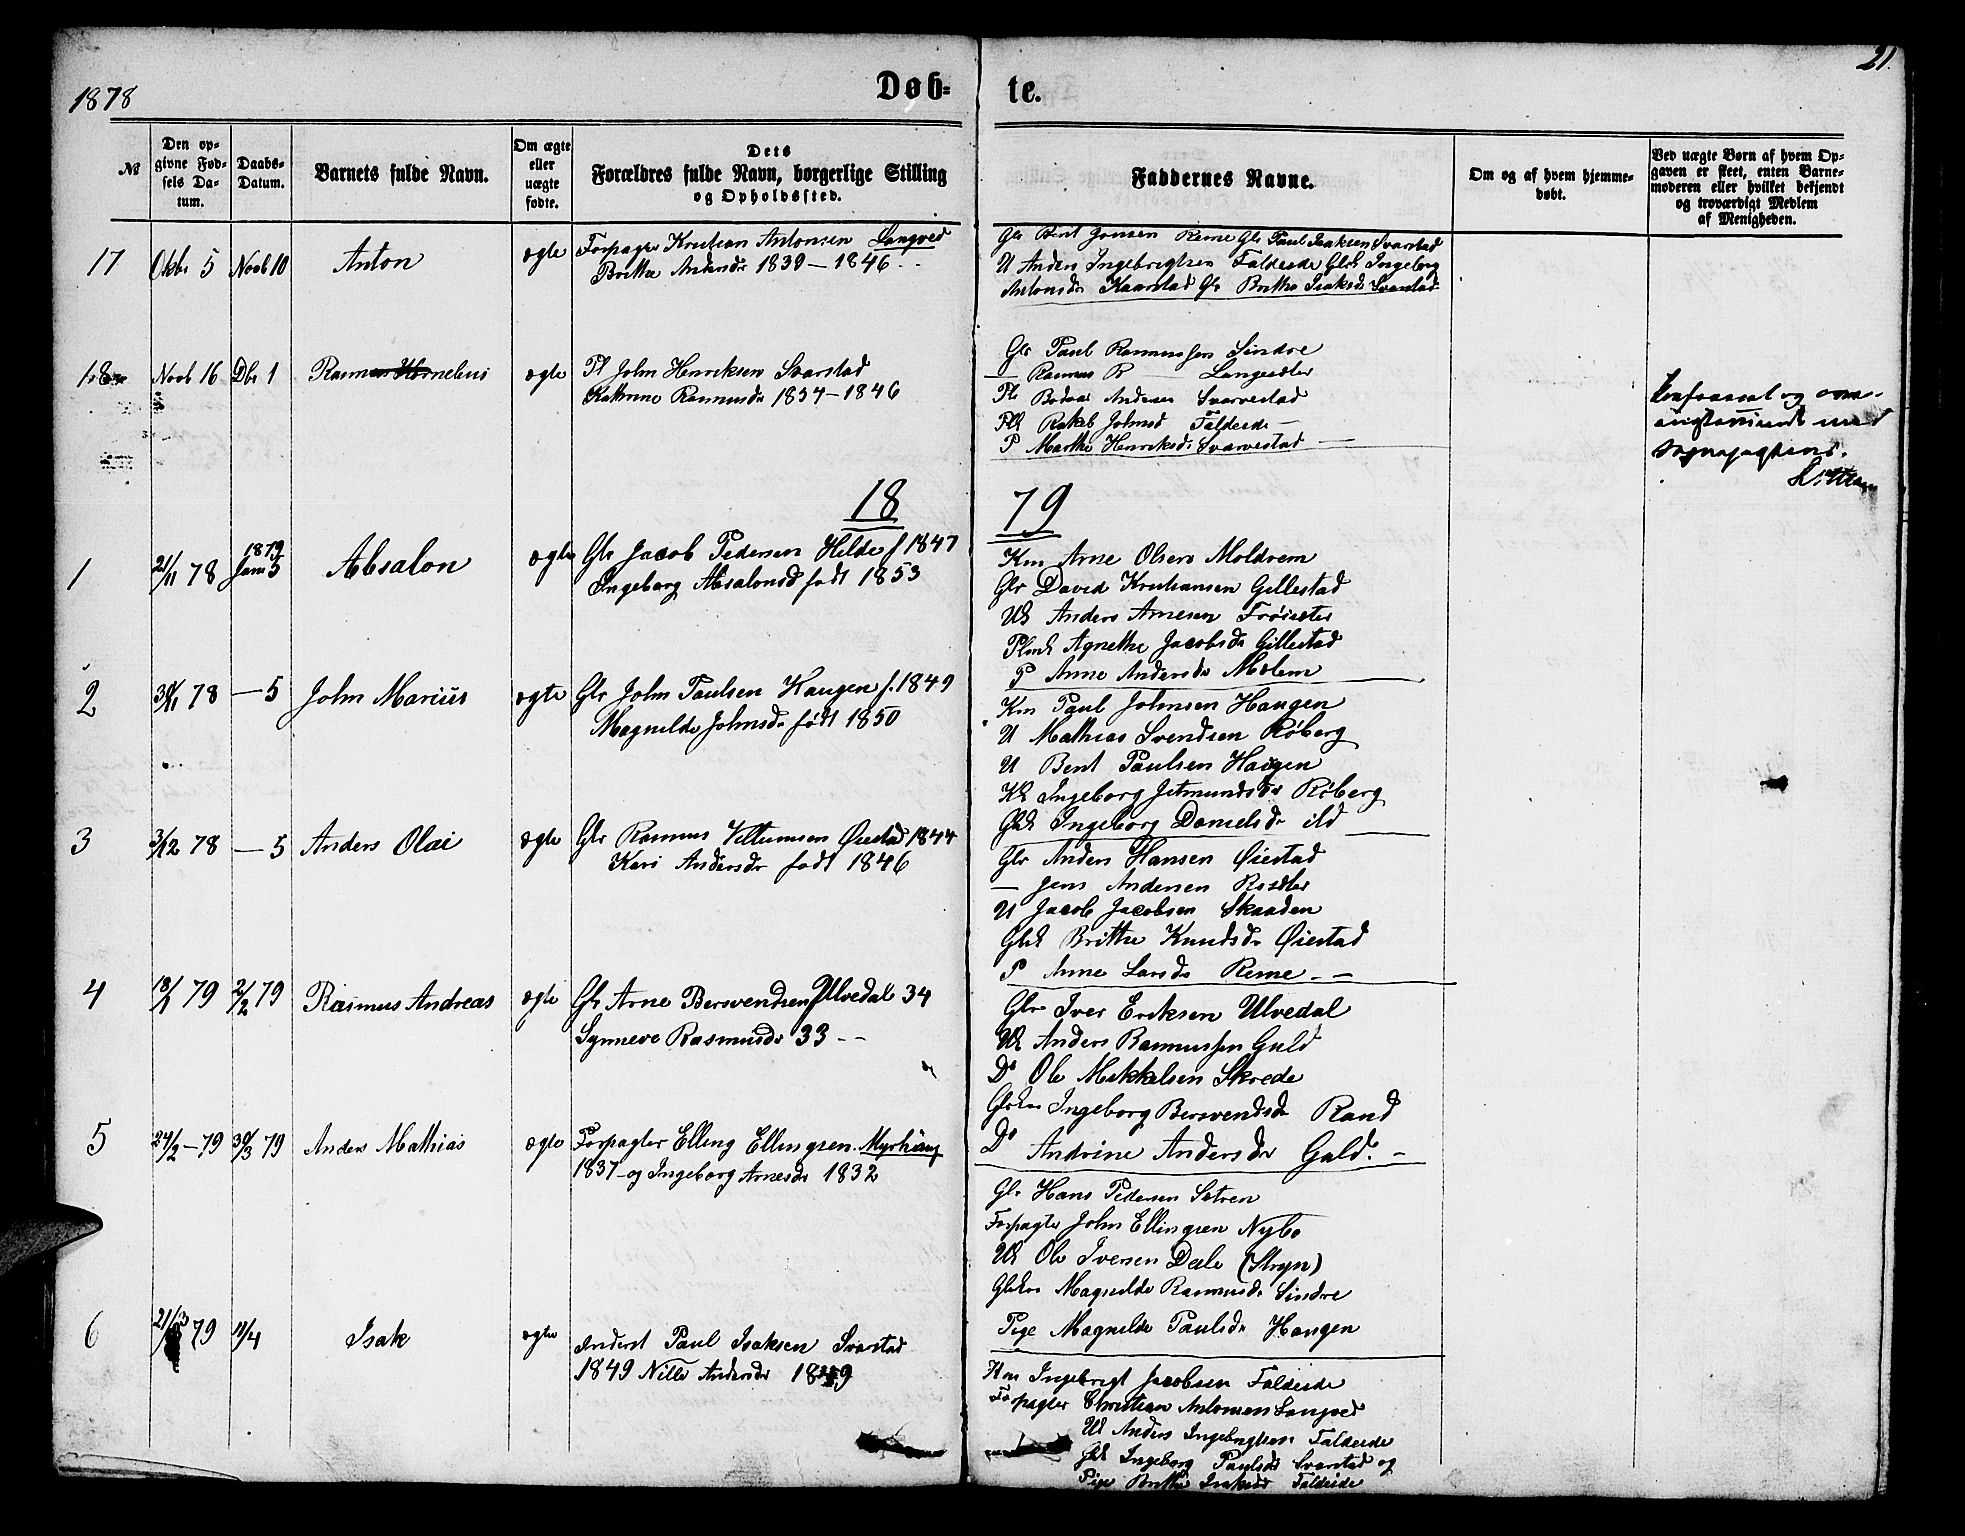 1878
Døb-
te.
21
№
Den op-
givne Fød-
sels Da-
tum.
Daabs-
Datum.
Barnets fulde Navn.
Om ægte
eller
uægte
fødte.
Dets
Forældres fulde Navn, borgerlige Stilling
og Opholdssted.
Faddernes Navne.
Om og af hvem hjemme-
døbt.
Ved uægte Børn af hvem Op-
gaven er skeet, enten Barne-
moderen eller hvilket bekjendt
og troværdigt Medlem
af Menigheden.
17 Oktbr 5 Novb 10 Anton ægte Forpagter Kristian Antonsen Langved
Brithe Andersdr 1839 – 1846
Glr Bent Jonsen Reme Glr Paul Isaksen Svarstad
U Anders Ingebrigtsen Faldeide Glrk Ingeborg
Antonsdr Kaarstad Gk Brithe Isaksdr Svarstad
18 Novb 16 Dbr 1 Rasmus Kornelius ægte Pl John Henriksen Svarstad
Kathrine Rasmusdr 1837 – 1846
Glr Paul Rasmussen Sindre
— Rasmus R — Langesæter
Pl Bodvar Andersen Svarvestad
Plk Rakel Johnsd Faldeide —
P Marthe Henriksdr Svarvestad —
18
79
1 21/11 78 1879 Janr 5 Absalon ægte Glr Jacob Pedersen Hilde f 1847
Ingeborg Absalonsd født 1853
Km Arne Olsen Moldrem
Glr David Kristiansen Gillestad
Uk Anders Arnesen Frøisæter
Plmk Agnethe Jacobsdr Gillestad
P Anne Andersdr Molem
2 30/11 78 — 5 John Marius ægte Glr John Paulsen Haugen f. 1849
Magnilde Johnsdr født 1850
Km Paul Johnsen Haugen
U Mathias Svendsen Røberg
U Bent Paulsen Haugen
Kk Ingeborg Jetmundsdr Røberg
Glk Ingeborg Danielsdr ild
3 3/12 78 — 5 Anders Olai ægte Glr Rasmus Villumsen Øiestad 1844
Kari Andersdr født 1846
Glr Anders Hansen Øiestad
— Jens Andersen Rosæter
U Jacob Jacobsen Skaaden
Glk Brithe Knudsdr Øiestad
P Anne Larsdr Reme
4 18/1 79 2/2 79 Rasmus Andreas ægte Gr Arne Bersvendsen Ulvedal 34
Synneve Rasmusdr 33
Glr Iver Eriksen Ulvedal
Uk Anders Rasmussen Guld
Do Ole Mikkelsen Skrede
Grkn Ingeborg Bersvendsdr Rand
Do Andrine Andersdr Guld.
5 24/2 – 79 30/3 79 Anders Mathias ægte Forpagter Elling Ellingsen Myrhaug
1837 – og Ingeborg Arnesdr 1832
Glr Hans Pedersen Sætren
Forpagter John Ellingsen Nybø
Uk Ole Iversen Dale (Stryn)
Glkn Magnilde Rasmusdr Sindre
Pige Magnilde Paulsdr Haugen
6 21/3 79 11/4 Isak ægte Inderst Paul Isaksen Svarstad
1849 Nille Andersdr 1849
Kon Ingebrigt Jacobsen Faldeide
Forpagter Christian Antonsen Langved
Uk Anders Ingebrigtsen Faldeide
Glk Ingeborg Paulsdr Svarstad og
Pige Brithe Isaksdr Faldeide